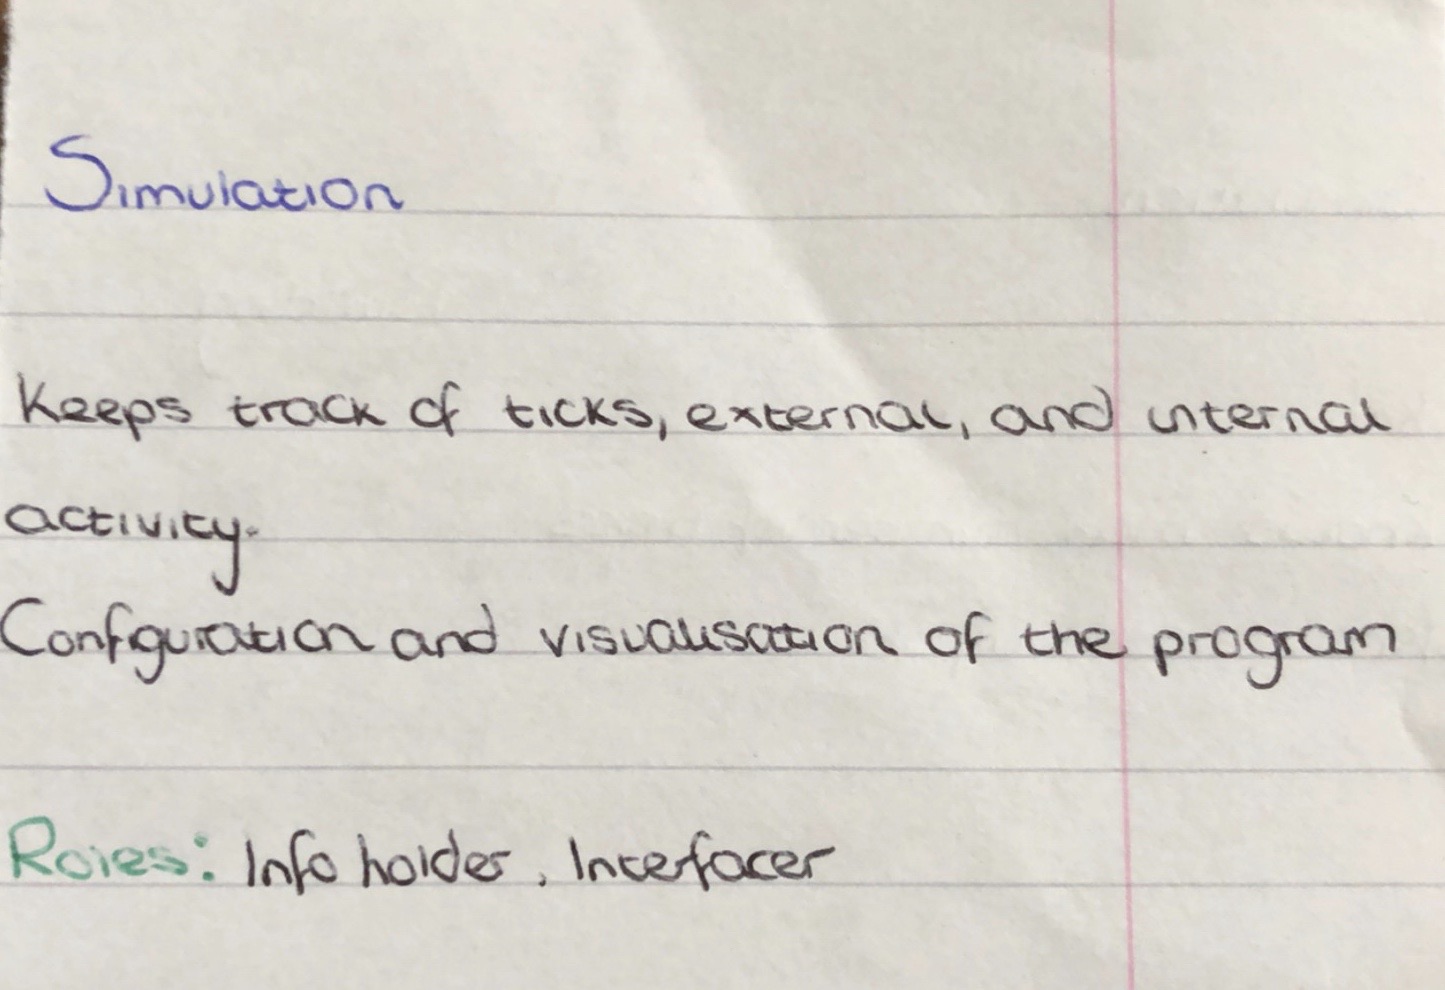 Simulation
Keeps track of ticks, external, and internal
activity.
Configuration and visualisation of the program
Roles: Info holder, Interfacer